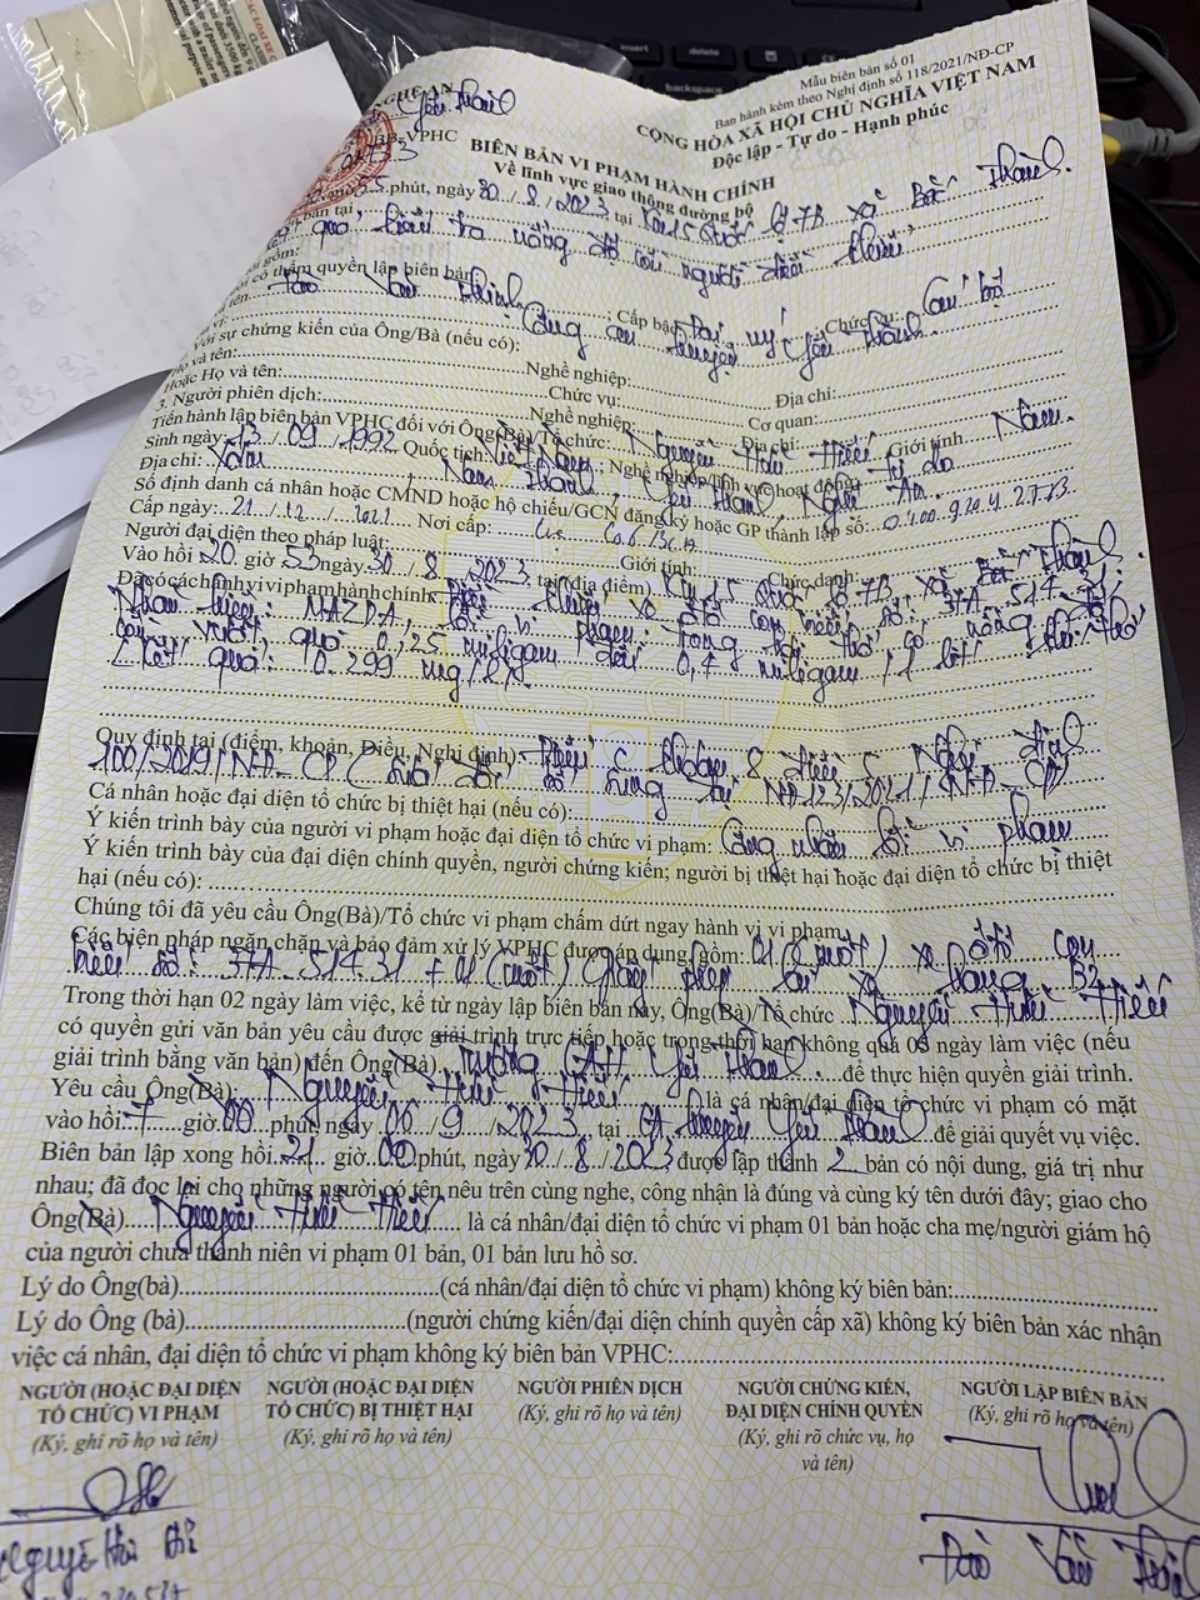 Mẫu biên bản số 01
Ban hành kèm theo Nghị định số 118/2021/NĐ-CP
NGHỆ AN
Yên Thành
CỘNG HÒA XÃ HỘI CHỦ NGHĨA VIỆT NAM
BB-VPHC
Độc lập - Tự do - Hạnh phúc
BIÊN BẢN VI PHẠM HÀNH CHÍNH
Về lĩnh vực giao thông đường bộ
55 phút, ngày 30/8/2023 tại Km15 Quốc lộ 7B xã Bắc Thành.
bản tại qua kiểm tra nồng độ cồn người điều khiển
gồm:
có thẩm quyền lập biên bản
tên Đào Văn Thịnh ; Cấp bậc Đại uý ; Chức vụ: Cán bộ
vị: Công an huyện Yên Thành
Với sự chứng kiến của Ông/Bà (nếu có):
Họ và tên: Nghề nghiệp: Địa chỉ:
Hoặc Họ và tên: Chức vụ: Cơ quan:
3. Người phiên dịch: Nghề nghiệp: Địa chỉ:
Tiến hành lập biên bản VPHC đối với Ông(Bà)/Tổ chức: Nguyễn Hữu Hiếu Giới tính Nam.
Sinh ngày: 13/09/1992 Quốc tịch: Việt Nam; Nghề nghiệp/lĩnh vực hoạt động: Tự do
Địa chỉ: Xóm , Nam Thành, Yên Thành, Nghệ An.
Số định danh cá nhân hoặc CMND hoặc hộ chiếu/GCN đăng ký hoặc GP thành lập số:
Cấp ngày: 21/12/2021 Nơi cấp: Cục
Người đại diện theo pháp luật: Giới tính: Chức danh:
Vào hồi 20 giờ 53 ngày 30/8/2023 tại (địa điểm) Km15 Quốc lộ 7B, xã Bắc Thành.
Đã có các hành vi vi phạm hành chính: Điều khiển xe ôtô con biển số: 37A-514.31;
Nhãn hiệu: MAZDA, lỗi vi phạm: trong hơi thở có nồng độ
cồn vượt quá 0,25 miligam đến 0,4 miligam/1 lít khí thở
(Kết quả: 0.299 mg/l).
Quy định tại (điểm, khoản, Điều, Nghị định): Điểm c khoản 8 Điều 5 Nghị định
100/2019/NĐ-CP (sửa đổi, bổ sung tại NĐ 123/2021/NĐ-CP)
Cá nhân hoặc đại diện tổ chức bị thiệt hại (nếu có):
Ý kiến trình bày của người vi phạm hoặc đại diện tổ chức vi phạm: Công nhận lỗi vi phạm
Ý kiến trình bày của đại diện chính quyền, người chứng kiến; người bị thiệt hại hoặc đại diện tổ chức bị thiệt
hại (nếu có):
Chúng tôi đã yêu cầu Ông(Bà)/Tổ chức vi phạm chấm dứt ngay hành vi vi phạm.
Các biện pháp ngăn chặn và bảo đảm xử lý VPHC được áp dụng, gồm: 01 (một) xe ôtô con
biển số: 37A-514.31 + 01 (một) Giấy phép lái xe hạng B2
Trong thời hạn 02 ngày làm việc, kể từ ngày lập biên bản này, Ông(Bà)/Tổ chức Nguyễn Hữu Hiếu
có quyền gửi văn bản yêu cầu được giải trình trực tiếp hoặc trong thời hạn không quá 05 ngày làm việc (nếu
giải trình bằng văn bản) đến Ông(Bà) Trưởng CAH Yên Thành để thực hiện quyền giải trình.
Yêu cầu Ông(Bà): Nguyễn Hữu Hiếu là cá nhân/đại diện tổ chức vi phạm có mặt
vào hồi 7 giờ 00 phút, ngày 06/9/2023 tại CA huyện Yên Thành để giải quyết vụ việc.
Biên bản lập xong hồi 21 giờ 00 phút, ngày 30/8/2023 được lập thành 2 bản có nội dung, giá trị như
nhau; đã đọc lại cho những người có tên nêu trên cùng nghe, công nhận là đúng và cùng ký tên dưới đây; giao cho
Ông(Bà) Nguyễn Hữu Hiếu là cá nhân/đại diện tổ chức vi phạm 01 bản hoặc cha mẹ/người giám hộ
của người chưa thành niên vi phạm 01 bản, 01 bản lưu hồ sơ.
Lý do Ông(bà) (cá nhân/đại diện tổ chức vi phạm) không ký biên bản:
Lý do Ông (bà) (người chứng kiến/đại diện chính quyền cấp xã) không ký biên bản xác nhận
việc cá nhân, đại diện tổ chức vi phạm không ký biên bản VPHC:
NGƯỜI (HOẶC ĐẠI DIỆN TỔ CHỨC) VI PHẠM
(Ký, ghi rõ họ và tên)
NGƯỜI (HOẶC ĐẠI DIỆN TỔ CHỨC) BỊ THIỆT HẠI
(Ký, ghi rõ họ và tên)
NGƯỜI PHIÊN DỊCH
(Ký, ghi rõ họ và tên)
NGƯỜI CHỨNG KIẾN, ĐẠI DIỆN CHÍNH QUYỀN
(Ký, ghi rõ chức vụ, họ và tên)
NGƯỜI LẬP BIÊN BẢN
(Ký, ghi rõ họ và tên)
Nguyễn Hữu
Đào Văn
insert
delete
backspace